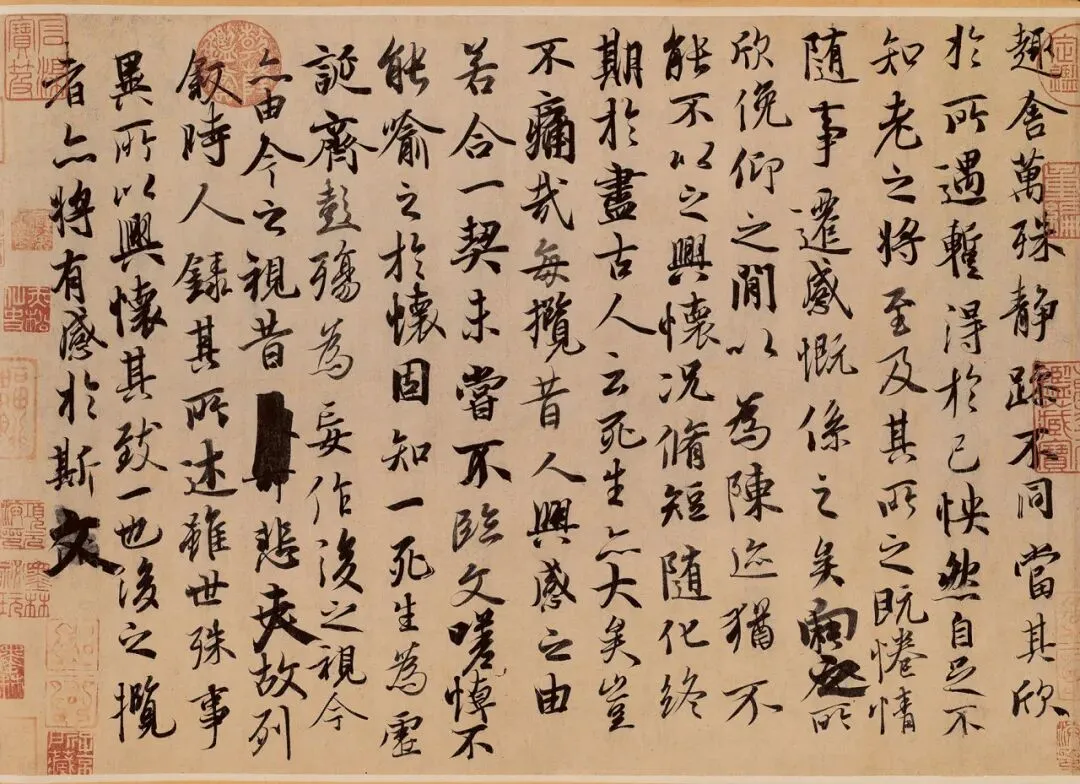 趣舍萬殊静躁不同當其欣
於所遇暫得於己怏然自足不
知老之將至及其所之既惓情
随事遷感慨係之矣向之所
欣俛仰之閒以為陳迹猶不
能不以之興懷况脩短随化終
期於盡古人云死生亦大矣豈
不痛哉每攬昔人興感之由
若合一契未嘗不臨文嗟悼不
能喻之於懷固知一死生為虛
誕齊彭殤為妄作後之視今
亦由今之視昔悲夫故列
叙時人錄其所述雖世殊事
異所以興懷其致一也後之攬
者亦將有感於斯文